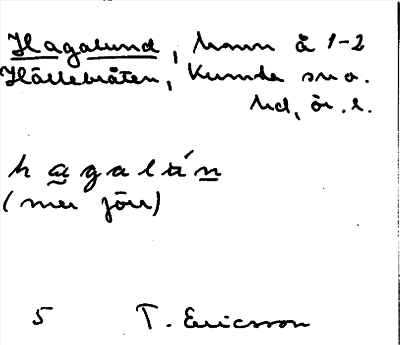 Hagalund, namn å 1-2
Hällebråten, Kumla sn o.
hd, ör. l.
hagaltín
(mer förr)
5 T. Ericsson